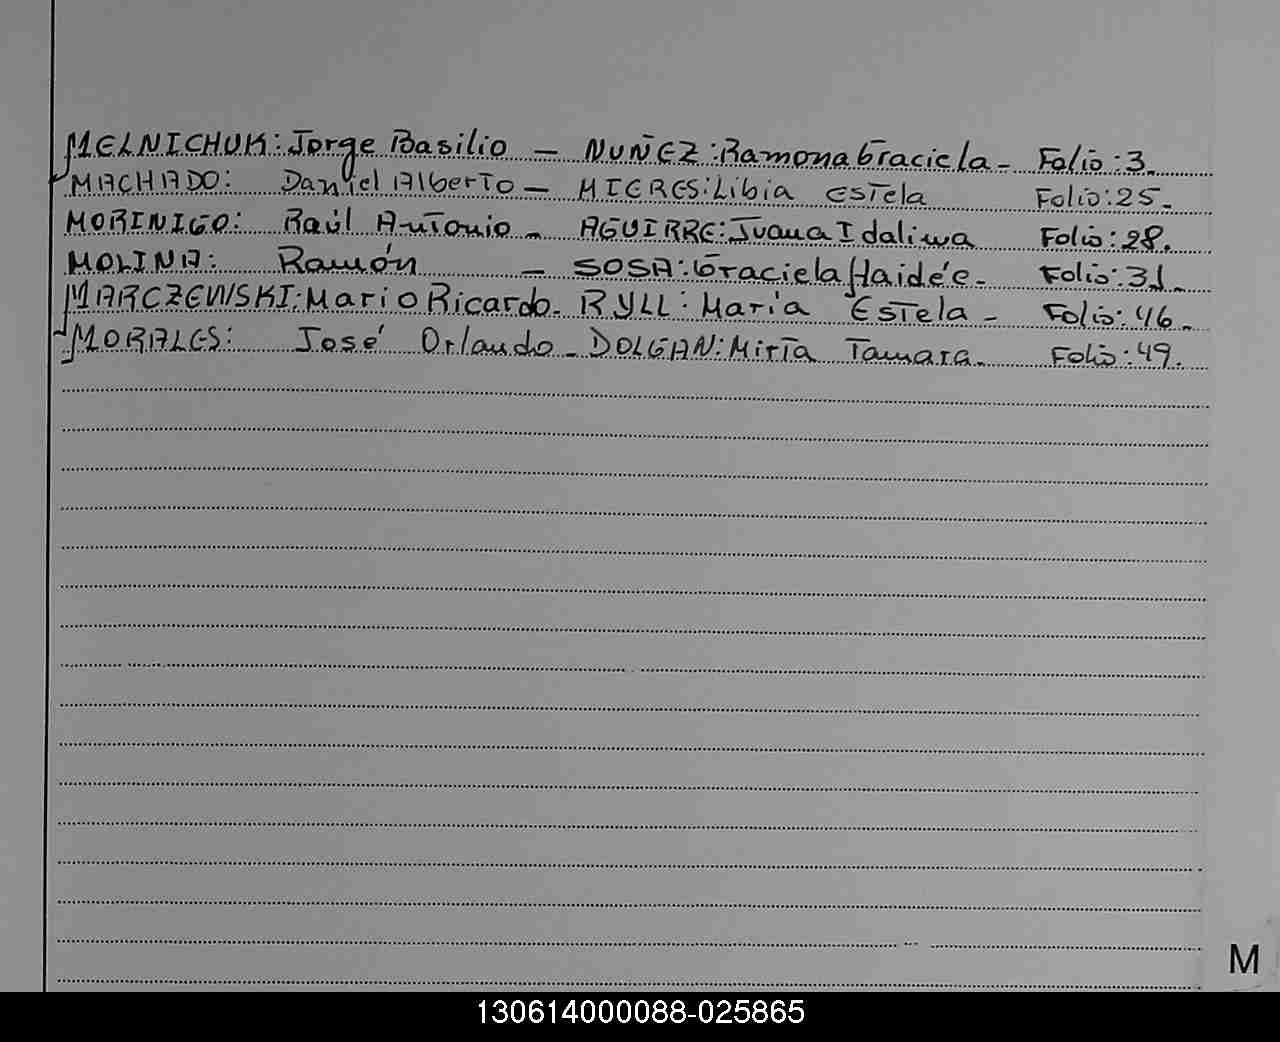 MELNICHUK: Jorge Basilio — NUÑEZ: Ramona Graciela - Folio: 3.
MACHADO: Daniel Alberto — MIERES: Libia Estela Folio: 25.
MORINIGO: Raúl Antonio - AGUIRRE: Juana Idalina Folio: 28.
MOLINA: Ramón - SOSA: Graciela Haidée - Folio: 31.
MARCZEWSKI: Mario Ricardo - RYLL: María Estela - Folio: 46.
MORALES: José Orlando - DOLGAN: Mirta Tamara. Folio: 49.
M
130614000088-025865